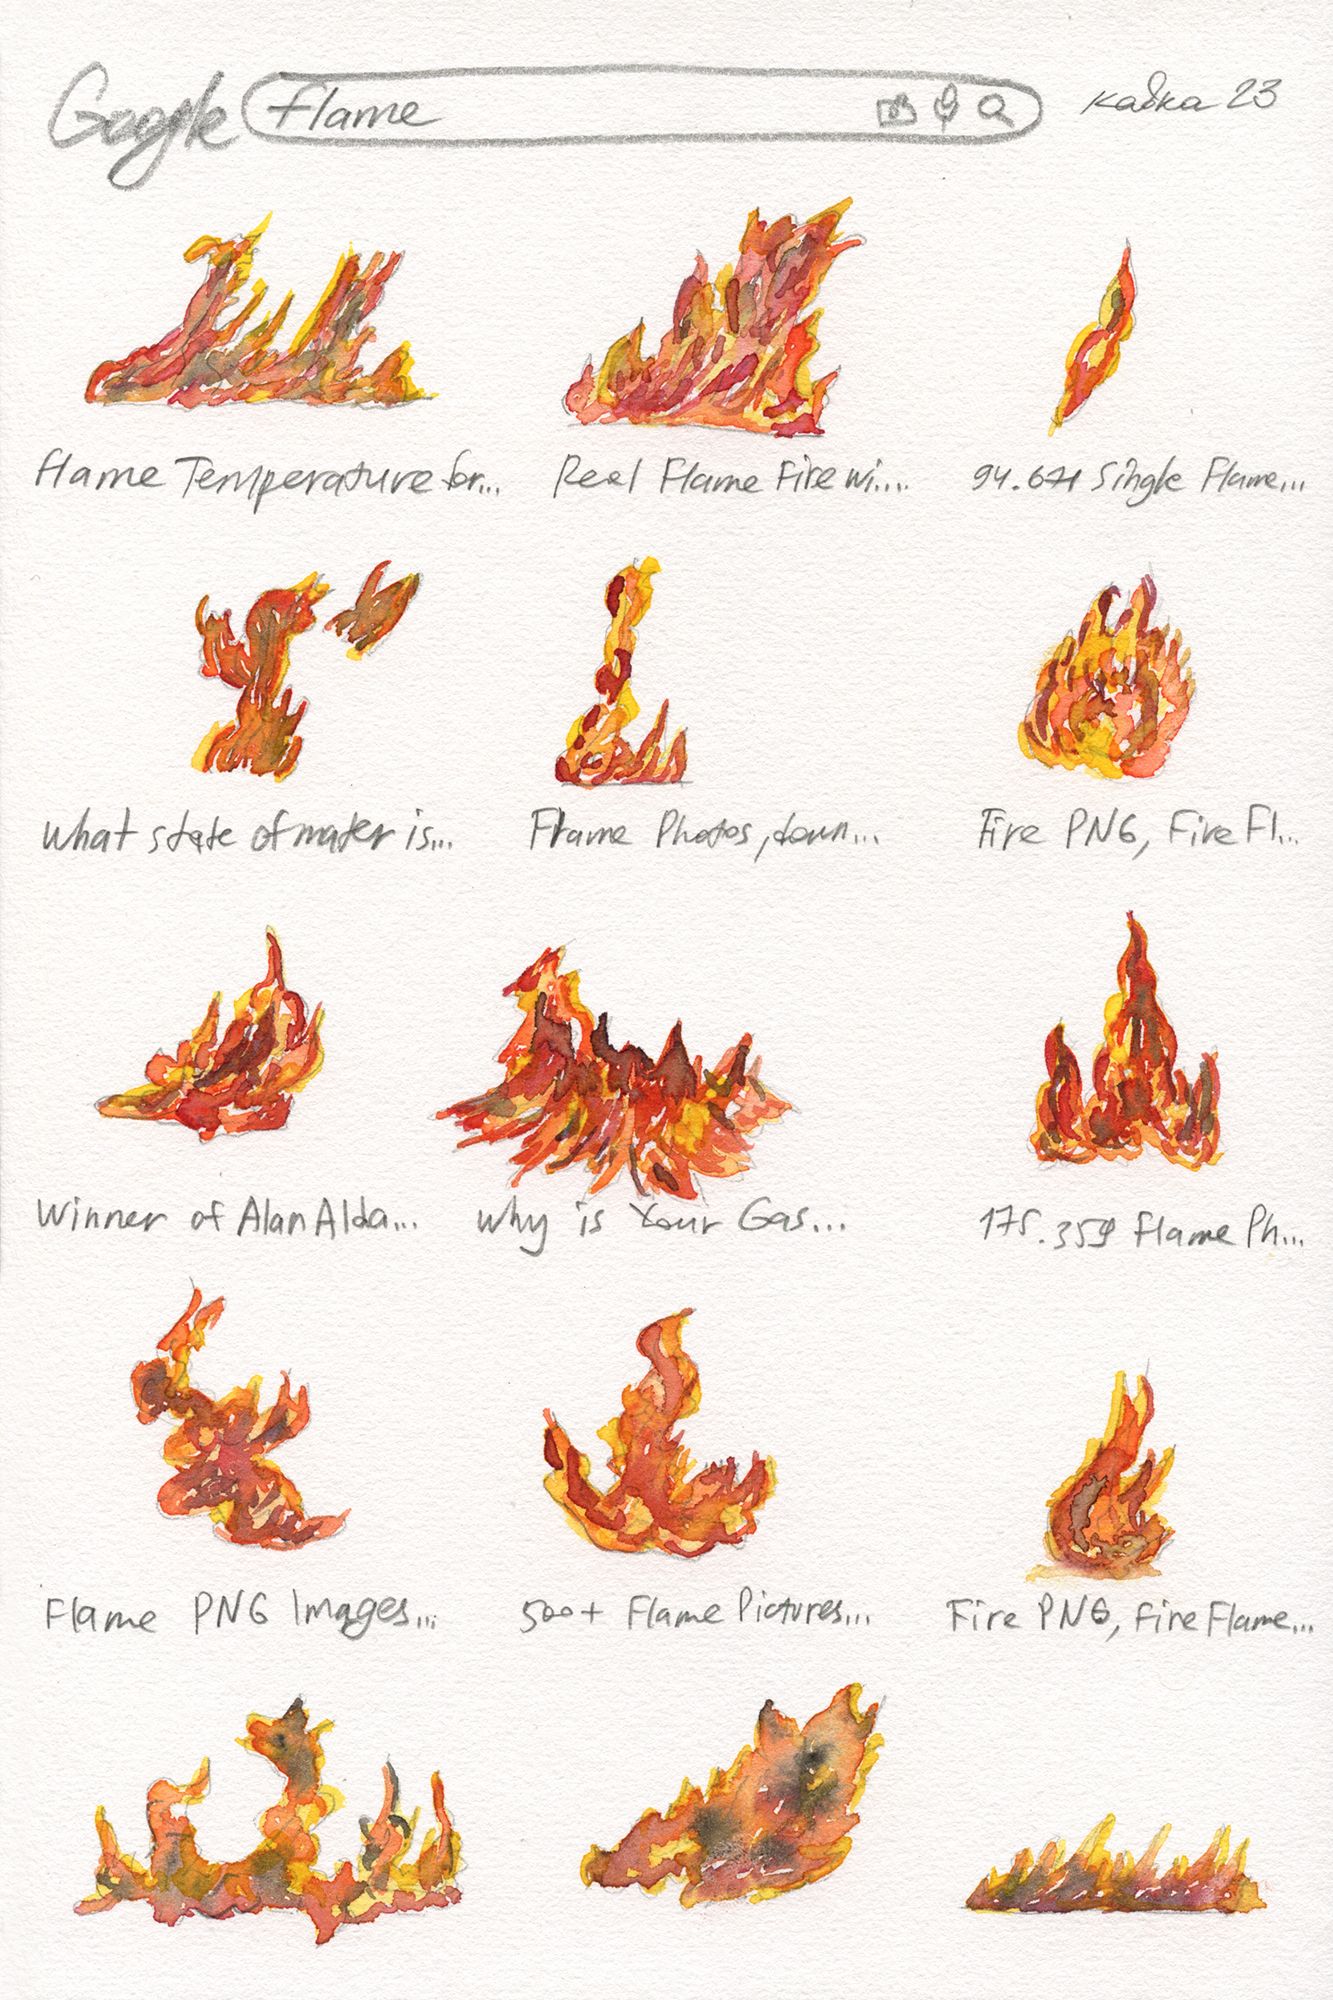 Google Flame кавка 23
Flame Temperature for... Real Flame Fire wi.... 94.671 Single Flame...
What state of mater is... Flame Photos, down... Fire PNG, Fire Fl...
Winner of Alan Alda... Why is Your Gas... 175.359 Flame Ph...
Flame PNG Images... 500+ Flame Pictures... Fire PNG, Fire Flame...